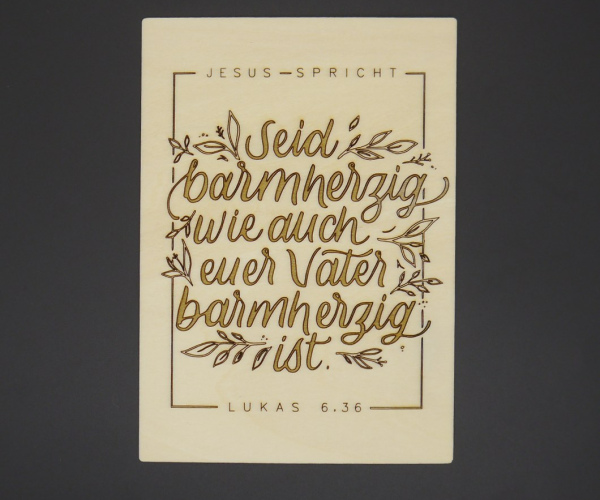 JESUS—SPRICHT
Seid
barmherzig
wie auch
euer Vater
barmherzig
ist.
LUKAS 6.36